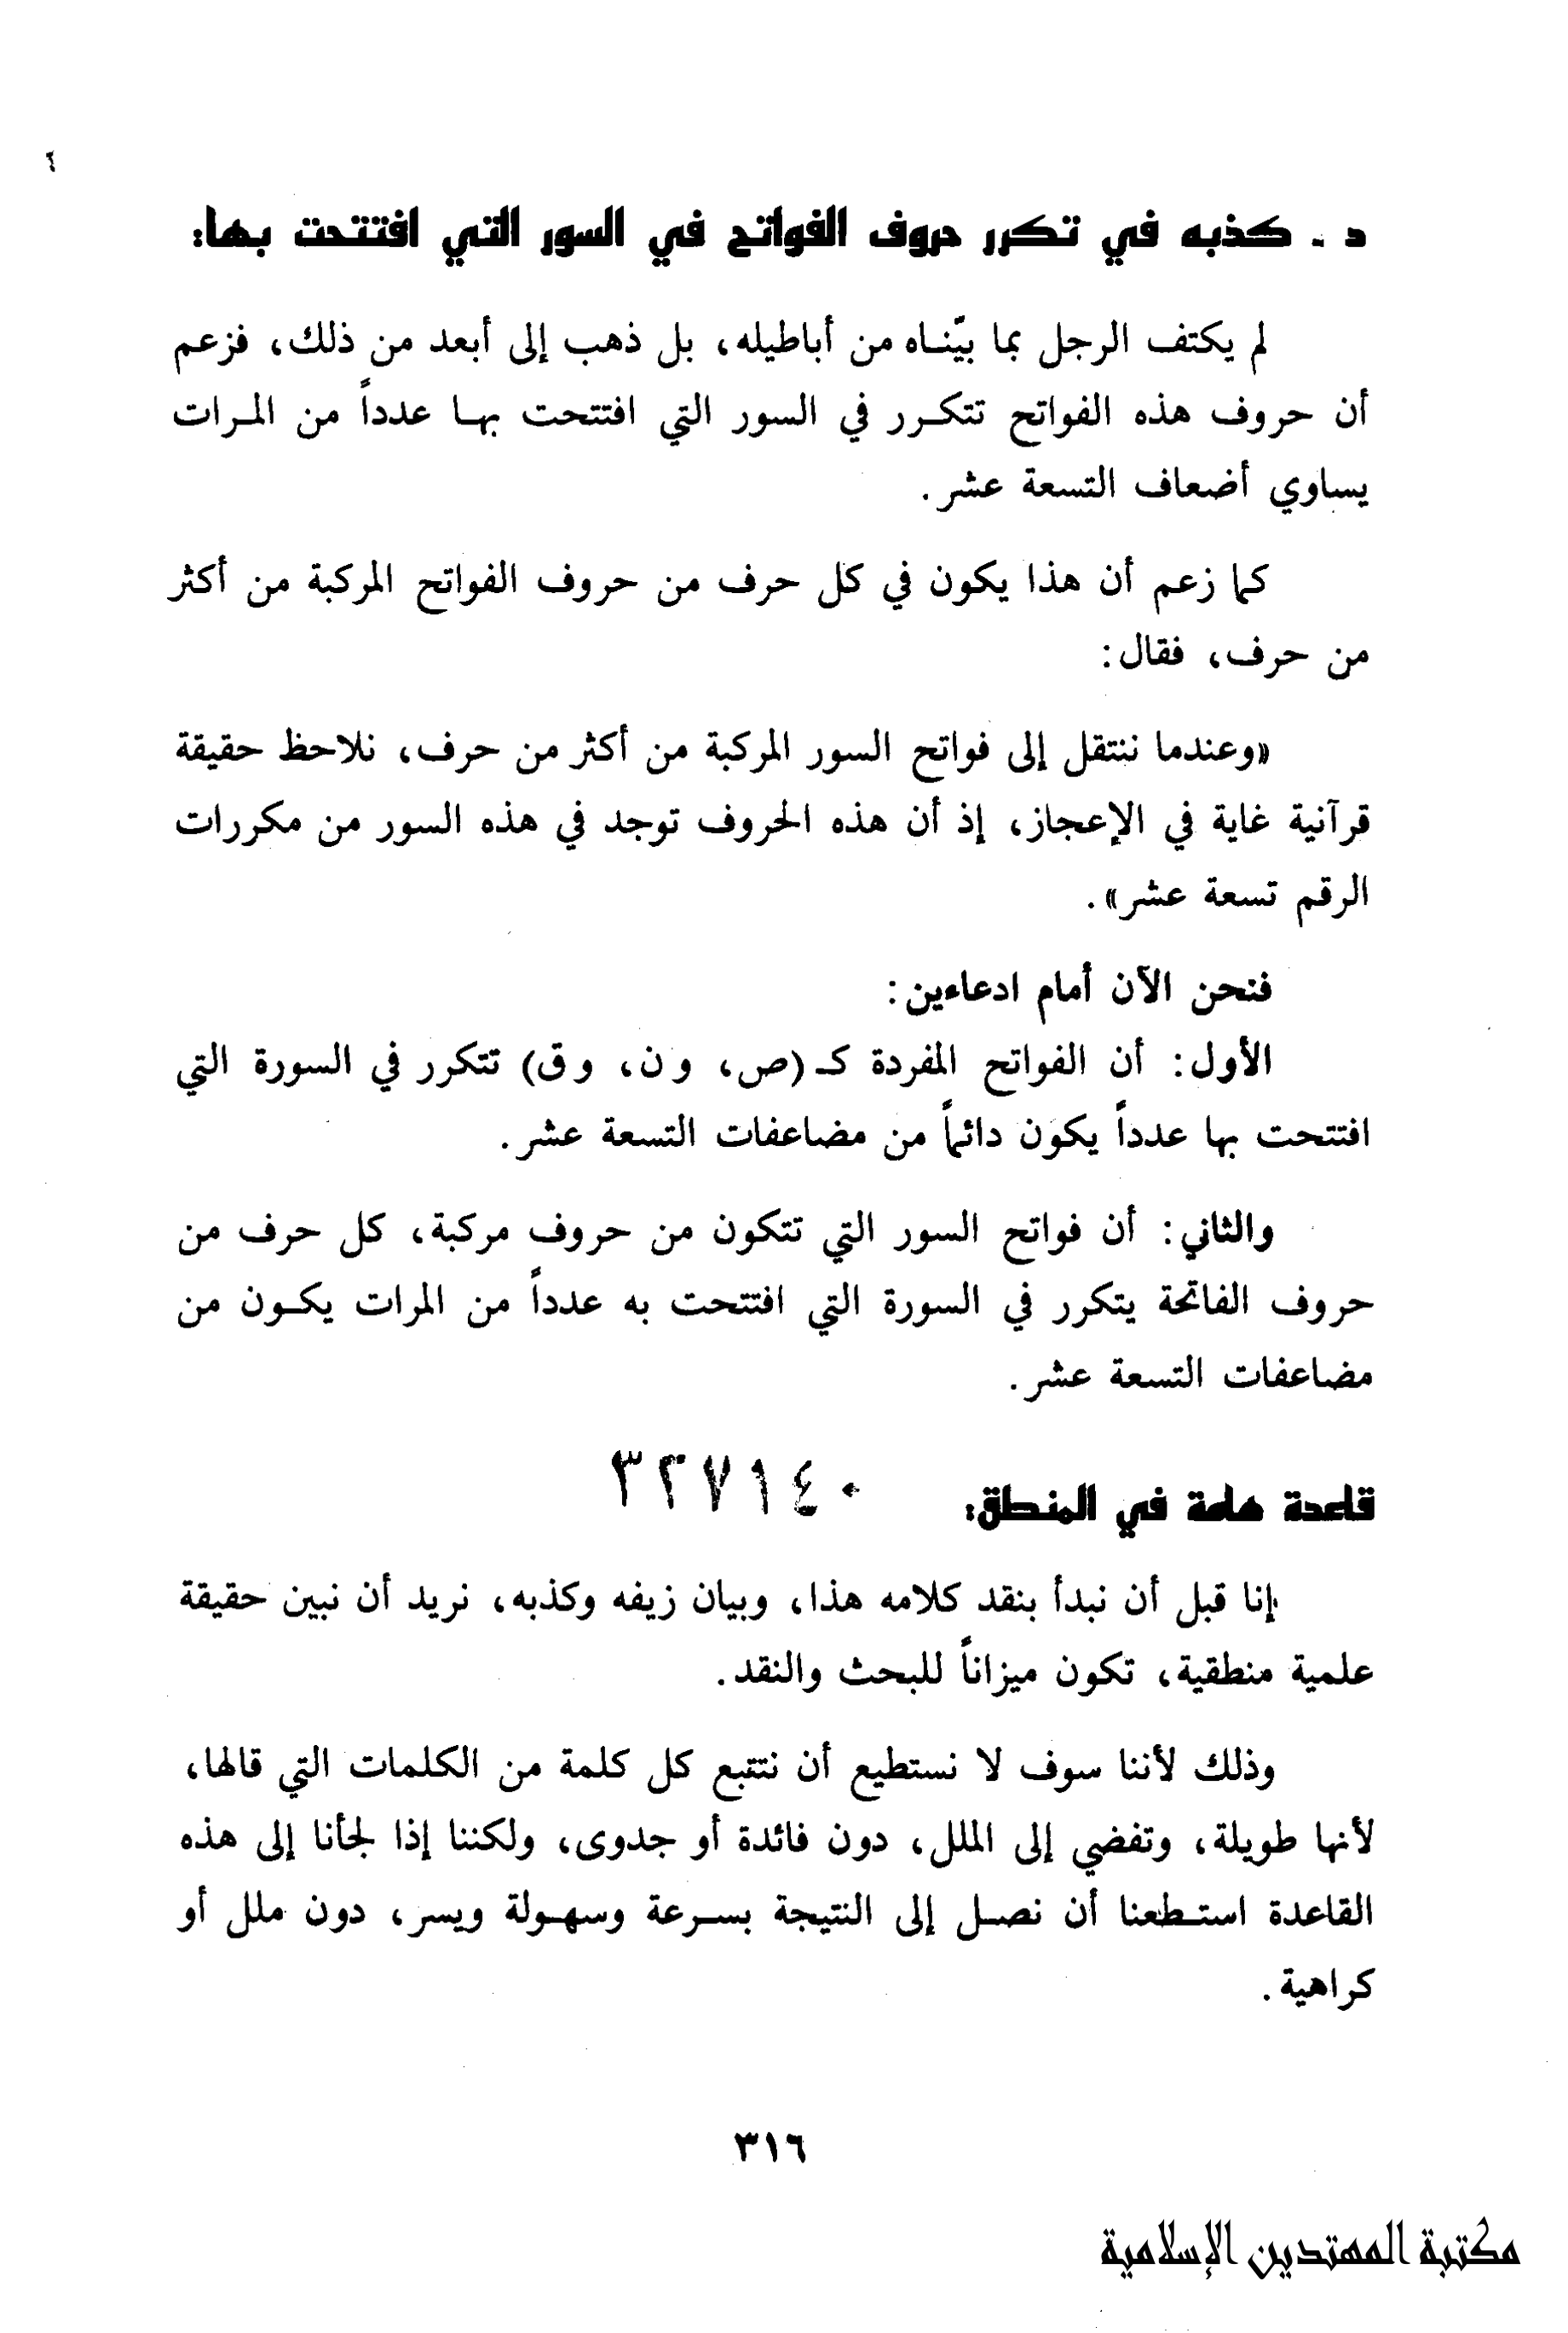 د ـ كذبه في تكرر حروف الفواتح في السور التي افتتحت بها:
لم يكتف الرجل بما بيّناه من أباطيله، بل ذهب إلى أبعد من ذلك، فزعم
أن حروف هذه الفواتح تتكرر في السور التي افتتحت بها عدداً من المرات
يساوي أضعاف التسعة عشر.
كما زعم أن هذا يكون في كل حرف من حروف الفواتح المركبة من أكثر
من حرف، فقال:
«وعندما ننتقل إلى فواتح السور المركبة من أكثر من حرف، نلاحظ حقيقة
قرآنية غاية في الإعجاز، إذ أن هذه الحروف توجد في هذه السور من مكررات
الرقم تسعة عشر».
فنحن الآن أمام ادعاءين:
الأول: أن الفواتح المفردة كـ (ص، و ن، و ق) تتكرر في السورة التي
افتتحت بها عدداً يكون دائماً من مضاعفات التسعة عشر.
والثاني: أن فواتح السور التي تتكون من حروف مركبة، كل حرف من
حروف الفاتحة يتكرر في السورة التي افتتحت به عدداً من المرات يكون من
مضاعفات التسعة عشر.
قاعدة هامة في المنطق: ٣٢٧١٤٠
إنا قبل أن نبدأ بنقد كلامه هذا، وبيان زيفه وكذبه، نريد أن نبين حقيقة
علمية منطقية، تكون ميزاناً للبحث والنقد.
وذلك لأننا سوف لا نستطيع أن نتتبع كل كلمة من الكلمات التي قالها،
لأنها طويلة، وتفضي إلى الملل، دون فائدة أو جدوى، ولكننا إذا لجأنا إلى هذه
القاعدة استطعنا أن نصل إلى النتيجة بسرعة وسهولة ويسر، دون ملل أو
كراهية.
٣١٦
مكتبة المهتدين الإسلامية